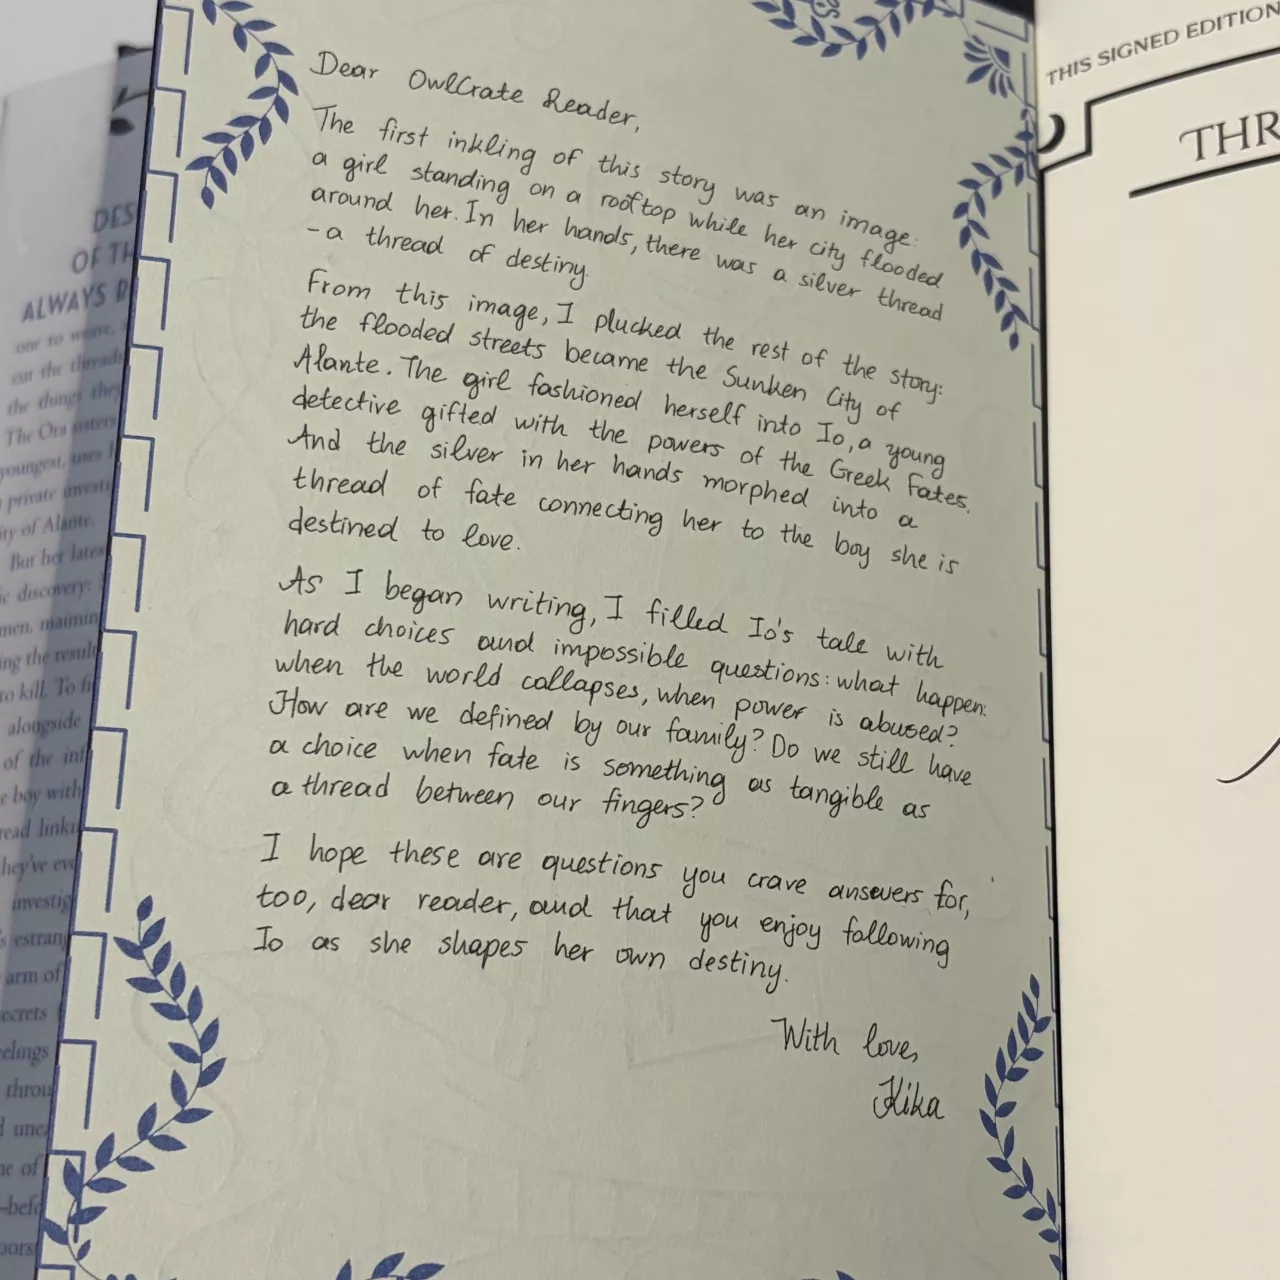 Dear OwlCrate Reader,
The first inkling of this story was an image:
a girl standing on a rooftop while her city flooded
around her. In her hands, there was a silver thread
- a thread of destiny.
From this image, I plucked the rest of the story:
the flooded streets became the Sunken City of
Alante. The girl fashioned herself into Io, a young
detective gifted with the powers of the Greek Fates.
And the silver in her hands morphed into a
thread of fate connecting her to the boy she is
destined to love.
As I began writing, I filled Io's tale with
hard choices and impossible questions: what happen:
when the world collapses, when power is abused?
How are we defined by our family? Do we still have
a choice when fate is something as tangible as
a thread between our fingers?
I hope these are questions you crave answers for,
too, dear reader, and that you enjoy following
Io as she shapes her own destiny.
With love,
Kika
THIS SIGNED EDITION
THR
DES
OF TH
ALWAYS B
one to weave,
cut the thread
the things they
The Ora sisters
youngest, uses
private investi
city of Alante.
But her lates
discovery:
men, maiming
ing the result
to kill. To fi
alongside
of the inf
boy with
read linki
they've eve
investig
estran
arm of
secrets
eelings
throu
une
of